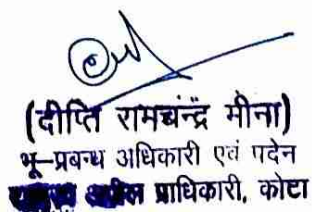 (दीप्ति रामचंद्र मीना)
भू-प्रबन्ध अधिकारी एवं पदेन
प्राधिकारी, कोटा